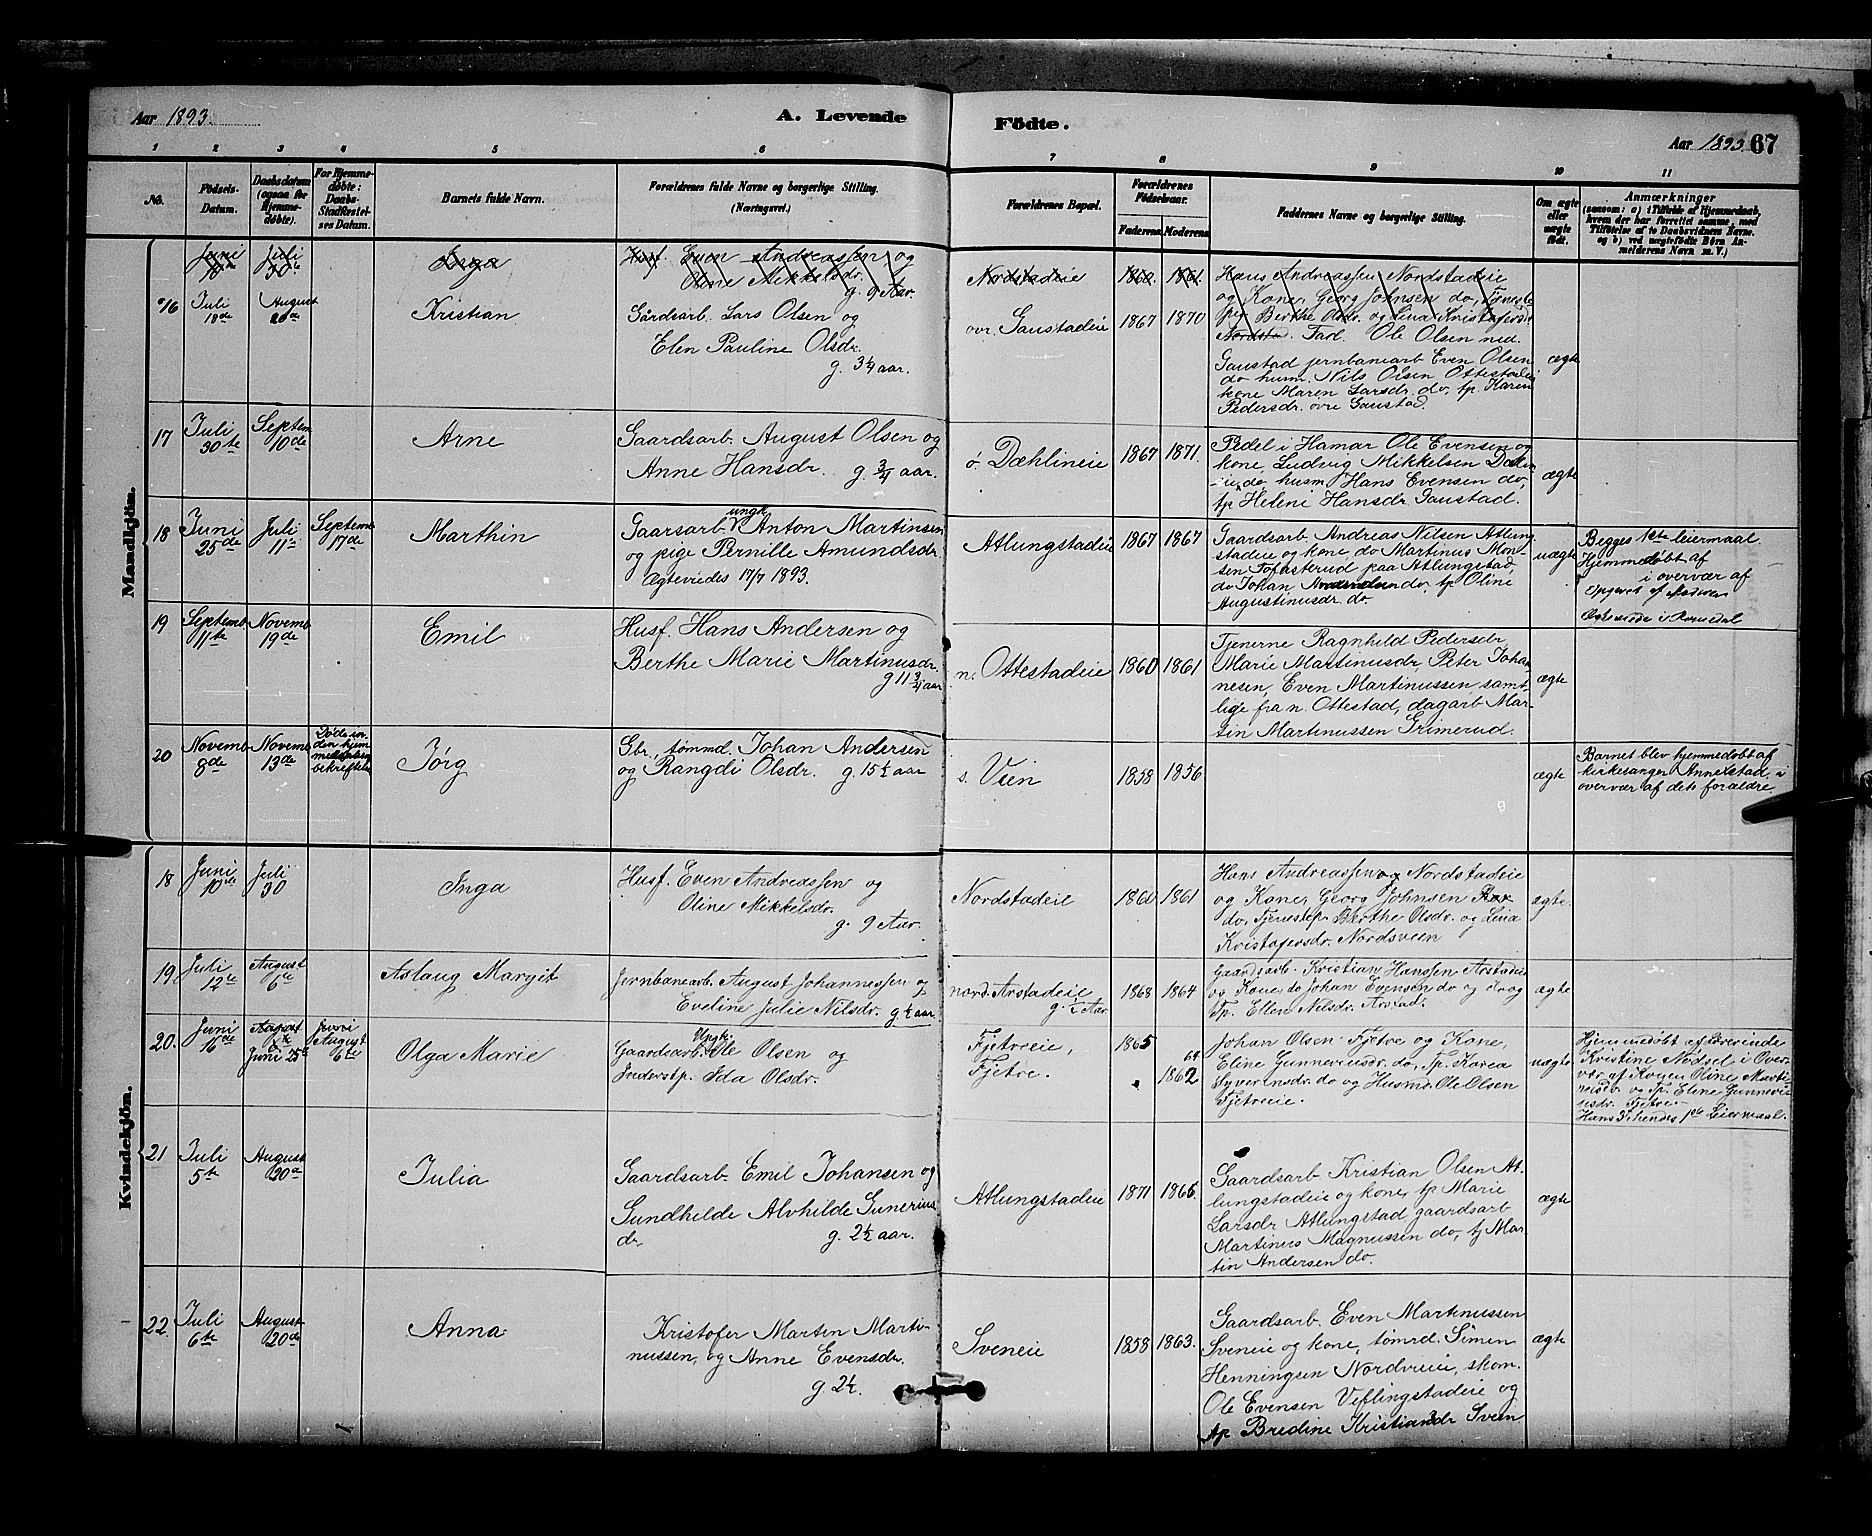 Aar 1893.
A. Levende Födte.
Aar 1893. 67
1 2 3 4 5 6 7 8 9 10 11
No.
Födsels-
Datum.
Daabsdatum
(ogsaa for
Hjemme-
döbte).
For Hjemme-
döbte:
Daabs-
Stadfæstel-
ses Datum.
Barnets fulde Navn.
Forældrenes fulde Navne og borgerlige Stilling.
(Næringsvei.)
Forældrenes Bopæl.
Forældrenes
Födselsaar.
Faderens. Moderens.
Faddernes Navne og borgerlige Stilling.
Om ægte
eller
uægte
födt.
Anmærkninger
(saasom: a) i Tilfælde af Hjemmedaab,
hvem der har forrettet samme, med
Tilföielse af to Daabsvidners Navne.
og b) ved uægtefödte Börn An-
melderens Navn m. V.)
Mandkjön.
Juni
10de
Juli
30te
Inga
Husf. Even Andreassen og
Oline Mikkelsdr.
g. 9 Aar.
Nordstadeie
1860. 1861.
Hans Andreassen Nordstadeie
og Kone, Georg Johnsen do, Tjeneste-
pig Berthe Olsdr. og Lina Kristofersdr
16
Juli
18de
August
20de
Kristian
Gårdsarb. Lars Olsen og
Elen Pauline Olsdr.
g. 3¼ aar.
ovr. Gaustadeie
1867 1870
Ole Olsen ned.
Gaustad jernbanearb Even Olsen
do husm. Nils Olsen Ottestadeie
kone Maren Larsdr. do, tp. Karen
Pedersdr. ovre Gaustad.
ægte
17
Juli
30te
Septem
10de
Arne
Gaardsarb. August Olsen og
Anne Hansdr. g. ¾ aar.
ö. Dæhlineie
1867 1871.
Pedel i Hamar Ole Evensen og
kone, Ludvig Mikkelsen Dæhlin
-eie, do, husm Hans Evensen do,
tp Helene Hansdr Gaustad.
ægte
18
Juni
25de
Juli
11te
Septemb
17de
Marthin
Gaarsarb ungk Anton Martinsen
og pige Pernille Amundsdr
Ægteviedes 17/7 1893.
Atlungstadeie
1867 1867
Gaardsarb Andreas Nilsen Atlung-
stadeie og kone, do Martinus Mon-
sen Fofasterud paa Atlungstad
do Johan do, tp Oline
Augustinusdr. do.
uægte
Begges 1ste leiermaal.
Hjemmedøbt af
i overvær af
Opgivet af Moderen
i Romedal
19
Septemb
11te
Novemb
19de
Emil
Husf. Hans Andersen og
Berthe Marie Martinusdr.
g 11¾ aar
n. Ottestadeie
1860 1861
Tjenerne Ragnhild Pedersdr
Marie Martinusdr Peter Johan-
nesen, Even Martinussen samt-
lige fra n. Ottestad, dagarb Mar-
tin Martinussen Grimerud.
ægte
20
Novemb
8de
Novemb
13de
Døde in-
den hjem
medaaben
bekræftedes
Jørg
Gbr, tømmd. Johan Andersen
og Rangdi Olsdr. g. 15½ aar
s. Vien
1858 1856
ægte
Barnet blev hjemmedøbt af
kirkesanger Annexstad, i
overvær af dets forældre.
Kvindekjön.
18
Juni
10de
Juli
30
Inga
Husf. Even Andreassen og
Oline Mikkelsdr.
g. 9 Aar.
Nordstadeie
1860 1861
Hans Andreassen Nordstadeie
og Kone, Georg Johnsen
do, Tjenestep. Berthe Olsdr. og Lina
Kristofersdr. Nordsveen
ægte.
19
Juli
12te
August
6te
Aslaug Margit
Jernbanearb. August Johannessen og
Eveline Julie Nilsdr. g. ½ aar.
nord. Arstadeie
g. ½ Aar
1868 1864
Gaardsarb. Kristian Hanssen Arstadeie
og Kone, do Johan Evensen do og
Tp. Ellen Nilsdr. Arstad.
ægte
20.
Juni
16de
Juni 25de
August
6te
Olga Marie
Gaardsarb. Ungk. Ole Olsen og
Inderstp. Ida Olsdr.
Fjetreeie,
Fjetre.
1865
1862
Johan Olsen Fjetre og Kone,
Eline Gunneriusdr. do, Tp. Karea
Syverinsdr. do og Husmd. Ole Olsen
Fjetreeie.
uægte
Hjemmedøbt af Lærerinde
Kristine Nidsel i Over-
vær af Konen Oline Marti-
nusdr. og Tp. Eline Gunneri-
usdr. Fjetre.
Hans 3die hendes 1ste Leiermaal.
21
Juli
5te
August
20de
Julia
Gaardsarb. Emil Johansen og
Gundhilde Alvhilde Gunerius
dr. g. 2½ aar.
Atlungstadeie
1871 1866.
Gaardsarb Kristian Olsen At-
lungstadeie og kone, tp Marie
Larsdr Atlungstad, gaardsarb
Martinus Magnussen do, tj Mar-
tin Andersen do.
ægte
22
Juli
6te
August
20de
Anna
Kristofer Marten Marti-
nussen, og Anne Evensdr.
g. 2½.
Sveneie
1858 1863.
Gaardsarb. Even Martinussen
Sveneie og kone, tømrd. Simen
Henningsen Nordvieie, skom.
Ole Evensen Veflingstadeie og
tp Bredine Kristiansdr Sveen
ægte